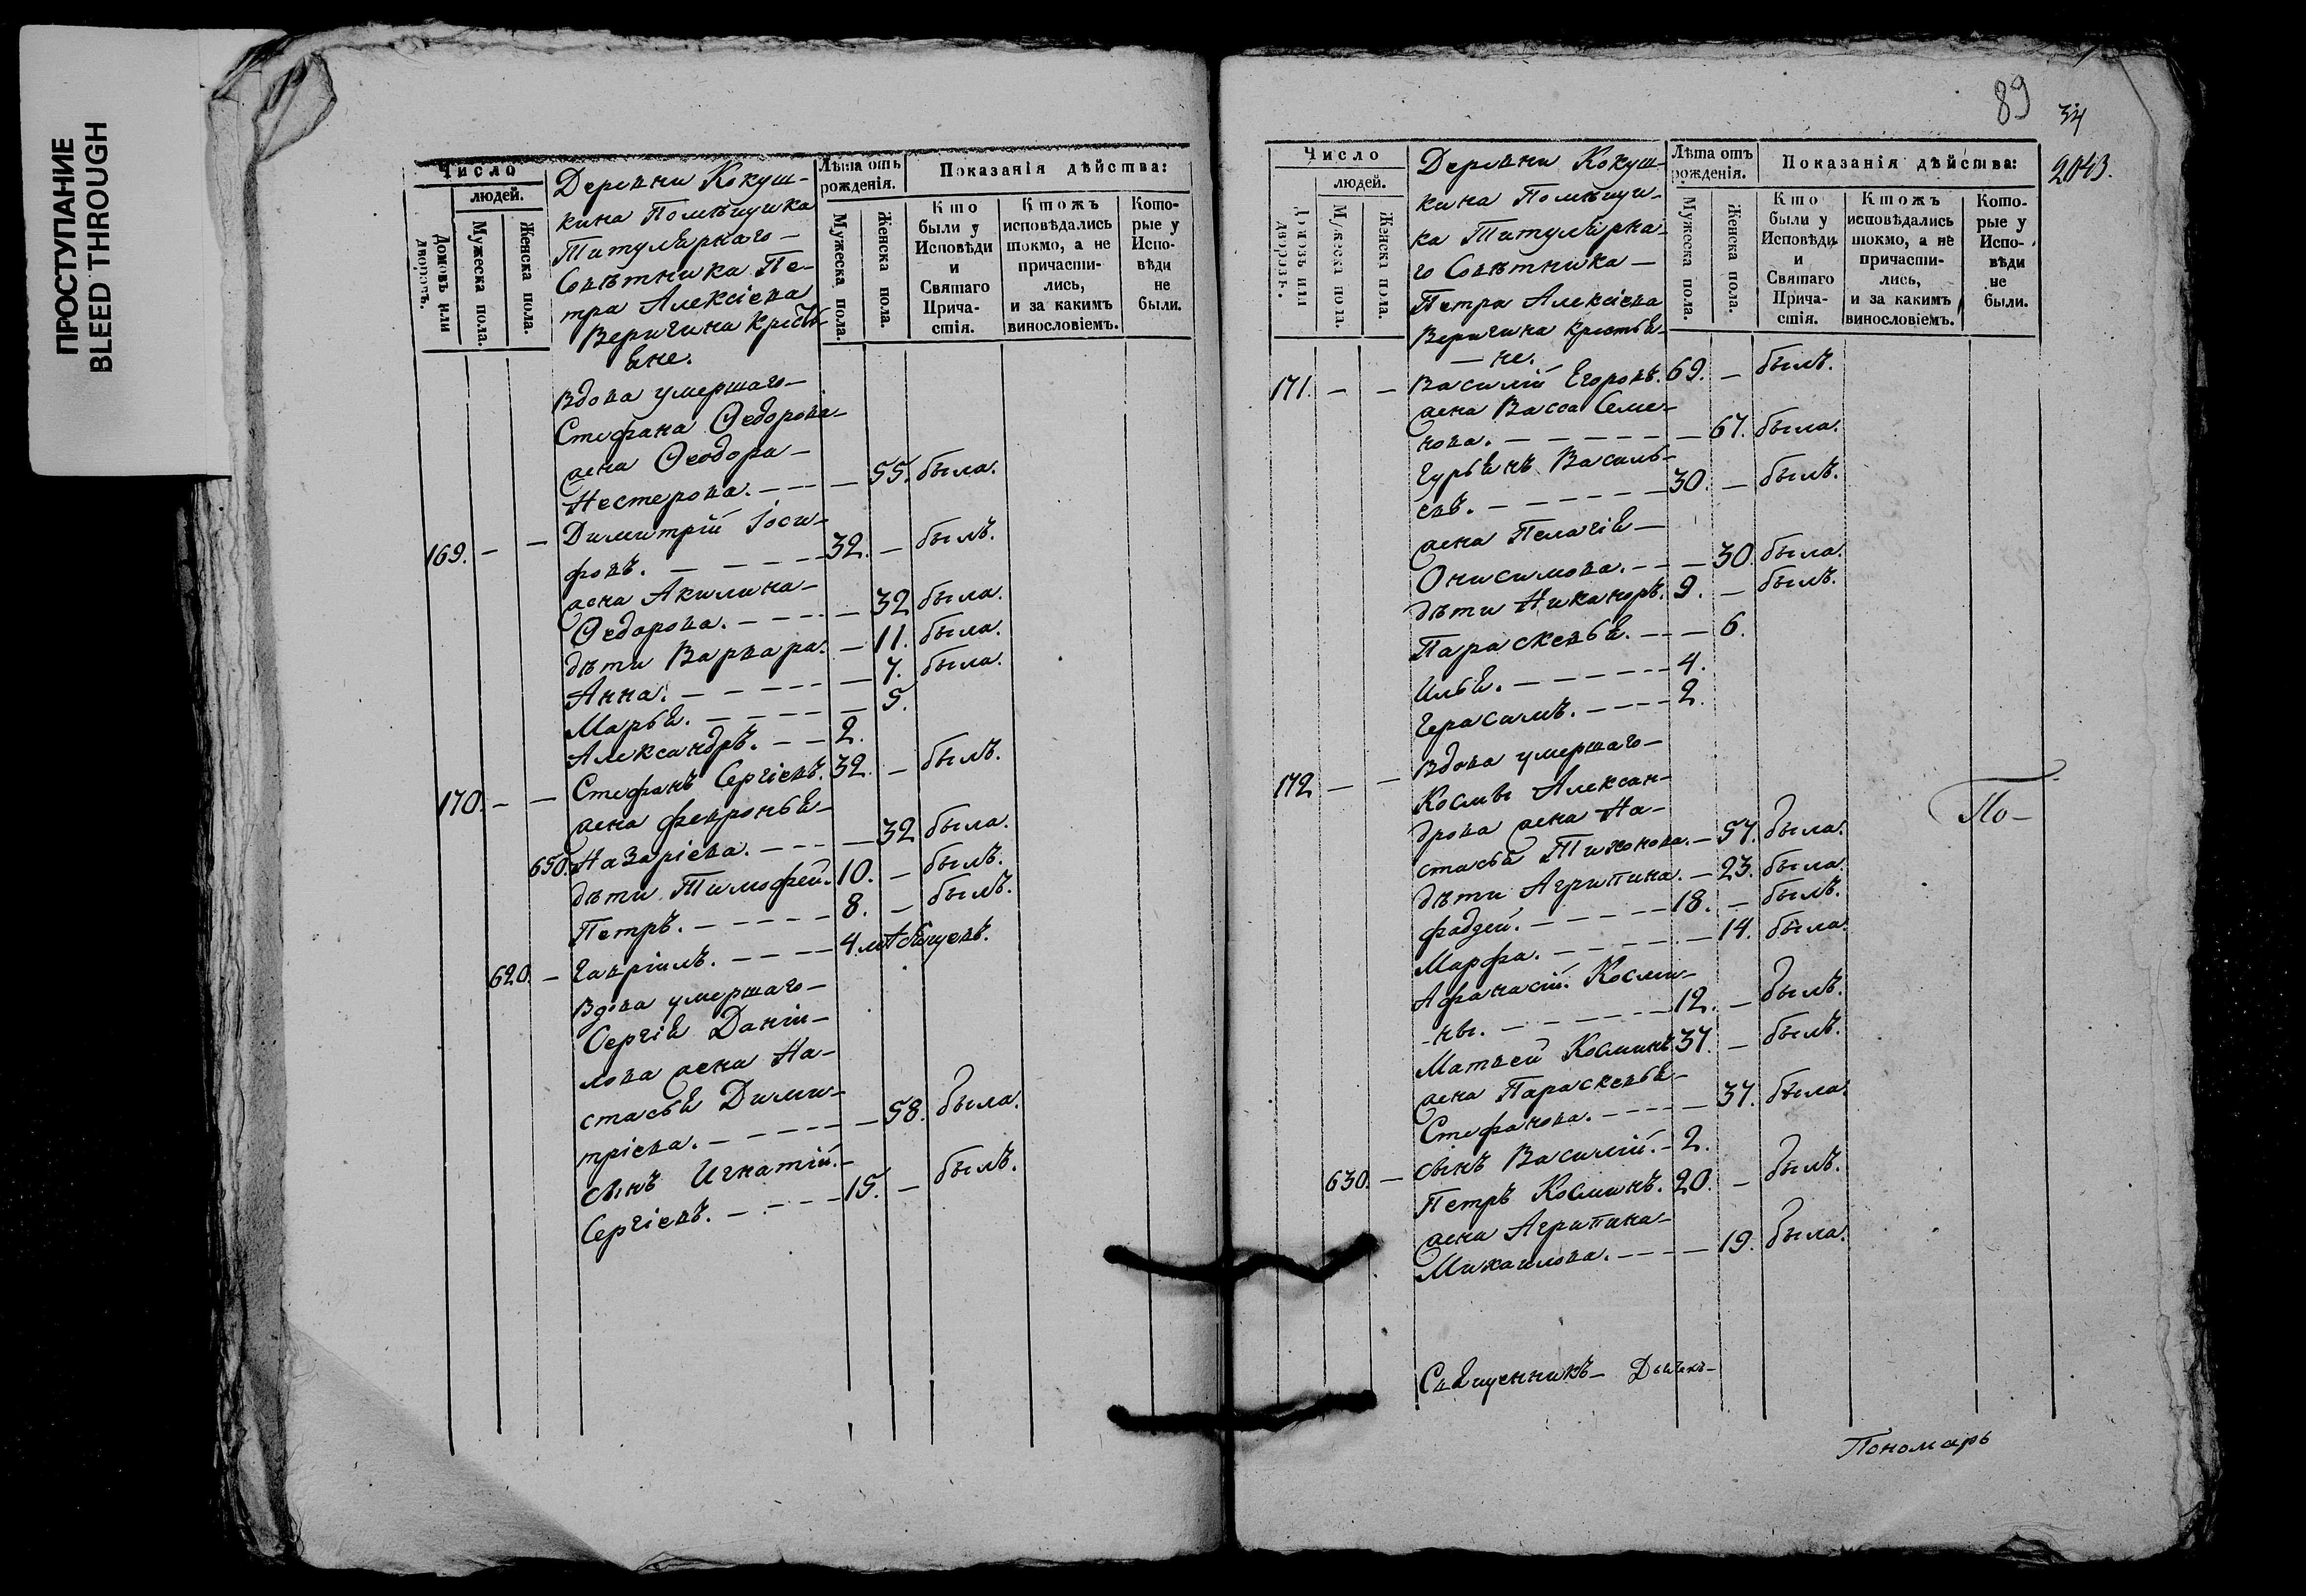 ПРОСТУПАНИЕ
BLEED THROUGH
Число
людей.
Домовъ или дворовъ.
Мужеска пола.
Женска пола.
Деревни Кокуш-
кина Помѣщика
Титулярнаго-
Совѣтника Пе-
тра Алексіева
Веригина Кресть
яне.
Лѣта отъ рожденія.
Мужеска пола.
Женска пола.
Показанія дѣйства:
Кто были у Исповѣди и Святаго Прича-стія.
Ктожъ исповѣдались токмо, а не причасти-лись, и за какимъ винословіемъ.
Кото-рые у Испо-вѣди не были.
Вдова умершаго-
Стефана Ѳедорова-
жена Ѳеодора-
Нестерова. - - - - 55. была.
169. - - Димитрій Іоси-
фовъ. - - - - 32. - былъ.
жена Акилина-
Ѳедорова. - - - - 32 была.
дѣти Варвара. - 11. была.
Анна. - - - - - 7. была.
Марья. - - - - - 5.
Александръ. - - 2.
170. - - Стефанъ Сергіевъ. 32. - былъ.
жена Февронья-
650. Назаріева. - - - - 32 была.
дѣти Тимофей. 10. - былъ.
Петръ. - - - - - 8. - былъ.
620. - Гавріилъ. - - - - 4.
Вдова умершаго-
Сергія Даніи-
лова жена На-
стасья Дими-
тріева. - - - - - 58. была.
сынъ Игнатій.-
Сергіевъ. - - - - 15. - былъ.
89
34
2043.
Число
людей.
Домовъ или дворовъ.
Мужеска пола.
Женска пола.
Деревни Кокуш-
кина Помѣщи-
ка Титулярна-
го Совѣтника -
Петра Алексіева
Веригина крестья-
-не.
Лѣта отъ рожденія.
Мужеска пола.
Женска пола.
Показанія дѣйства:
Кто были у Исповѣди и Святаго Прича-стія.
Ктожъ исповѣдались токмо, а не причасти-лись, и за какимъ винословіемъ.
Кото-рые у Испо-вѣди не были.
171. - - Василій Егоровъ. 69. - былъ.
жена Васса Семе-
нова. - - - - - - 67. была.
Гурьянъ Василь-
евъ. - - - - - - 30. - былъ.
жена Пелагія-
Онисимова. - - - 30. была.
дѣти Никаноръ. 9. - былъ.
Параскевья. - - - 6.
Илья. - - - - - - 4.
Герасимъ. - - - - 2.
172 - - Вдова умершаго-
Космы Алексан-
дрова жена На-
стасья Тихонова. - 57. была.
дѣти Агрипина. - 23. была.
Фадѣй. - - - - - 18. - былъ.
Марфа. - - - - - 14. была.
Афанасій. Косми-
-ны. - - - - - - 12. - былъ.
Матвей Косминъ 37. - былъ.
жена Параскевья-
Стефанова. - - - - 37. была.
630. - сынъ Василій. - 2.
Петръ Косминъ. 20. - былъ.
жена Агрипина-
Михаилова. - - - - 19. была.
По-
Священникъ- Дьячкъ-
Пономарь